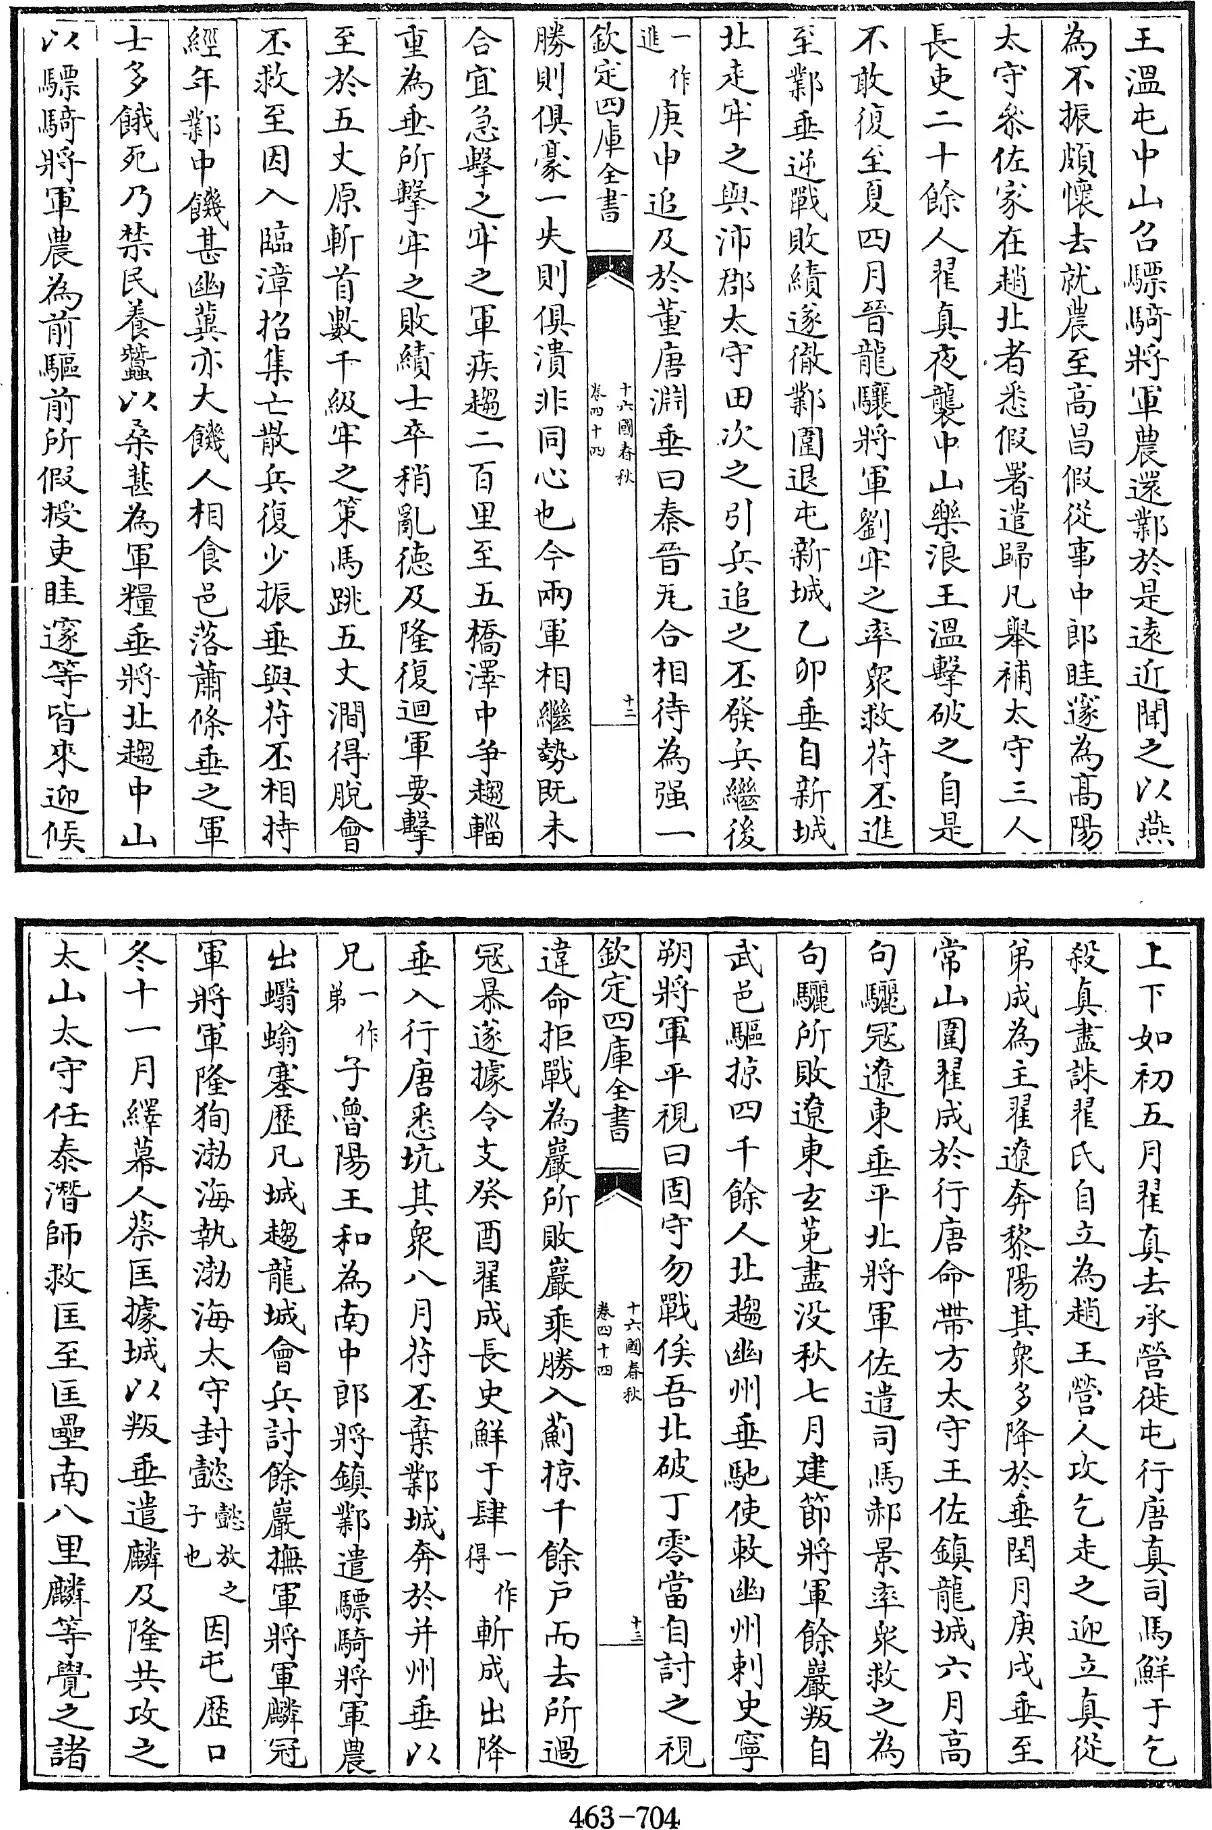 王溫屯中山召驃騎將軍農還鄴於是遠近聞之以燕
為不振頗懷去就農至高昌假從事中郎眭邃為高陽
太守參佐家在趙北者悉假署遣歸凡舉補太守三人
長吏二十餘人翟真夜襲中山樂浪王溫擊破之自是
不敢復至夏四月晉龍驤將軍劉牢之率衆救苻丕進
至鄴垂逆戰敗績遂徹鄴圍退屯新城乙卯垂自新城
北走牢之與沛郡太守田次之引兵追之丕發兵繼後
一作進庚申追及於董唐淵垂曰秦晉瓦合相待為强一
欽定四庫全書
十六國春秋
卷四十四
十二
勝則俱豪一失則俱潰非同心也今兩軍相繼勢既未
合宜急擊之牢之軍疾趨二百里至五橋澤中争趨輜
重為垂所擊牢之敗績士卒稍亂德及隆復迴軍要擊
至於五丈原斬首數千級牢之策馬跳五丈澗得脫會
丕救至因入臨漳招集亡散兵復少振垂與苻丕相持
經年鄴中饑甚幽冀亦大饑人相食邑落蕭條垂之軍
士多餓死乃禁民養蠶以桑葚為軍糧垂將北趨中山
以驃騎將軍農為前驅前所假授吏眭邃等皆來迎候
上下如初五月翟真去承營徙屯行唐真司馬鮮于乞
殺真盡誅翟氏自立為趙王營人攻乞走之迎立真從
弟成為主翟遼奔黎陽其衆多降於垂閏月庚戌垂至
常山圍翟成於行唐命帶方太守王佐鎮龍城六月高
句驪冦遼東垂平北將軍佐遣司馬郝景率衆救之為
句驪所敗遼東玄菟盡没秋七月建節將軍餘巖叛自
武邑驅掠四千餘人北趨幽州垂馳使敕幽州刺史寧
朔將軍平視曰固守勿戰俟吾北破丁零當自討之視
欽定四庫全書
十六國春秋
卷四十四
十三
違命拒戰為巖所敗巖乘勝入薊掠千餘户而去所過
冦暴遂據令支癸酉翟成長史鮮于肆一作得斬成出降
垂入行唐悉坑其衆八月苻丕棄鄴城奔於并州垂以
兄一作弟子魯陽王和為南中郎將鎮鄴遣驃騎將軍農
出蠮螉塞歷凡城趨龍城會兵討餘巖撫軍將軍麟冠
軍將軍隆狥渤海執渤海太守封懿懿放之子也因屯歷口
冬十一月繹幕人蔡匡據城以叛垂遣麟及隆共攻之
太山太守任泰潛師救匡至匡壘南八里麟等覺之諸
463-704